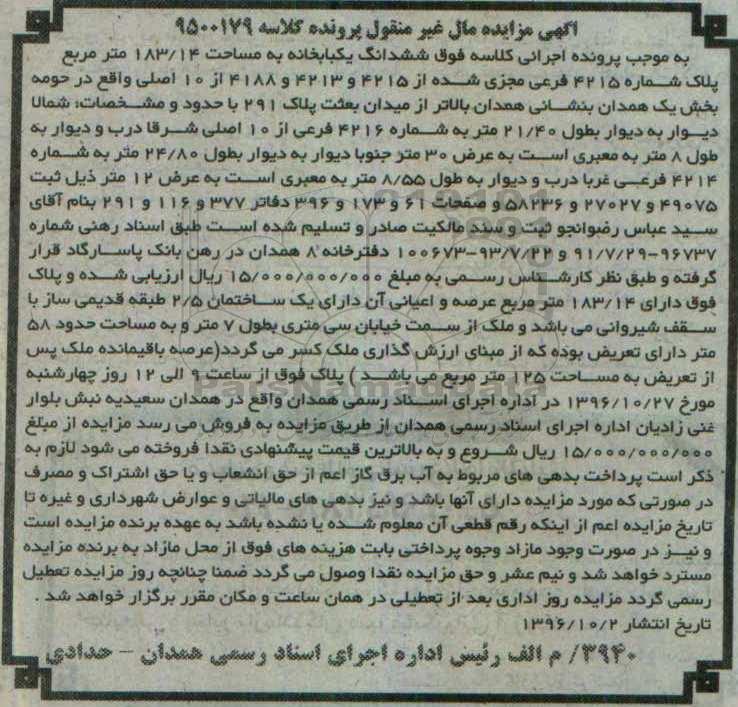 آگهی مزایده مال غیر منقول پرونده کلاسه ۹۵۰۰۱۷۹
به موجب پرونده اجرائی کلاسه فوق ششدانگ یکبابخانه به مساحت ۱۸۳/۱۴ متر مربع
پلاک شماره ۴۲۱۵ فرعی مجزی شده از ۴۲۱۵ و ۴۲۱۳ و ۴۱۸۸ از ۱۰ اصلی واقع در حومه
بخش یک همدان بنشانی همدان بالاتر از میدان بعثت پلاک ۲۹۱ با حدود و مشخصات: شمالا
دیوار به دیوار بطول ۲۱/۴۰ متر به شماره ۴۲۱۶ فرعی از ۱۰ اصلی شرقا درب و دیوار به
طول ۸ متر به معبری است به عرض ۳۰ متر جنوبا دیوار به دیوار بطول ۲۴/۸۰ متر به شماره
۴۲۱۴ فرعی غربا درب و دیوار به طول ۸/۵۵ متر به معبری است به عرض ۱۲ متر ذیل ثبت
۴۹۰۷۵ و ۲۷۰۲۷ و ۵۸۲۳۶ و صفحات ۶۱ و ۱۷۳ و ۳۹۶ دفاتر ۳۷۷ و ۱۱۶ و ۲۹۱ بنام آقای
سید عباس رضوانجو ثبت و سند مالکیت صادر و تسلیم شده است طبق اسناد رهنی شماره
۹۶۷۳۷-۹۱/۷/۲۹ و ۹۳/۷/۲۲-۱۰۰۶۷۳ دفترخانه ۸ همدان در رهن بانک پاسارگاد قرار
گرفته و طبق نظر کارشناس رسمی به مبلغ ۱۵/۰۰۰/۰۰۰/۰۰۰ ریال ارزیابی شده و پلاک
فوق دارای ۱۸۳/۱۴ متر مربع عرصه و اعیانی آن دارای یک ساختمان ۲/۵ طبقه قدیمی ساز با
سقف شیروانی می باشد و ملک از سمت خیابان سی متری بطول ۷ متر و به مساحت حدود ۵۸
متر دارای تعریض بوده که از مبنای ارزش گذاری ملک کسر می گردد(عرصه باقیمانده ملک پس
از تعریض به مساحت ۱۲۵ متر مربع می باشد ) پلاک فوق از ساعت ۹ الی ۱۲ روز چهارشنبه
مورخ ۱۳۹۶/۱۰/۲۷ در اداره اجرای اسناد رسمی همدان واقع در همدان سعیدیه نبش بلوار
غنی زادیان اداره اجرای اسناد رسمی همدان از طریق مزایده به فروش می رسد مزایده از مبلغ
۱۵/۰۰۰/۰۰۰/۰۰۰ ریال شروع و به بالاترین قیمت پیشنهادی نقدا فروخته می شود لازم به
ذکر است پرداخت بدهی های مربوط به آب برق گاز اعم از حق انشعاب و یا حق اشتراک و مصرف
در صورتی که مورد مزایده دارای آنها باشد و نیز بدهی های مالیاتی و عوارض شهرداری و غیره تا
تاریخ مزایده اعم از اینکه رقم قطعی آن معلوم شده یا نشده باشد به عهده برنده مزایده است
و نیز در صورت وجود مازاد وجوه پرداختی بابت هزینه های فوق از محل مازاد به برنده مزایده
مسترد خواهد شد و نیم عشر و حق مزایده نقدا وصول می گردد ضمنا چنانچه روز مزایده تعطیل
رسمی گردد مزایده روز اداری بعد از تعطیلی در همان ساعت و مکان مقرر برگزار خواهد شد .
تاریخ انتشار ۱۳۹۶/۱۰/۲
۳۹۴۰/ م الف رئیس اداره اجرای اسناد رسمی همدان – حدادی
ParsNamadData